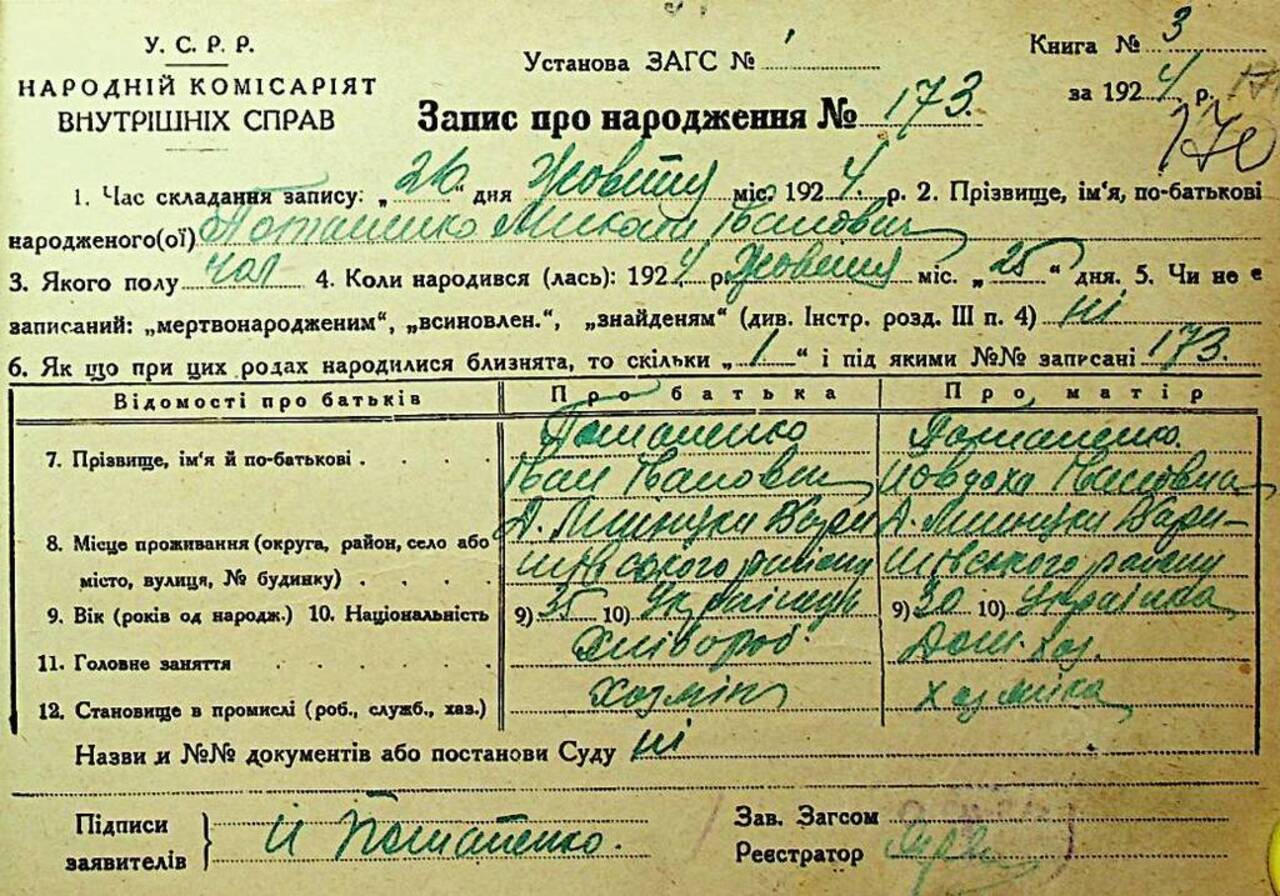 У. С. Р. Р.
НАРОДНІЙ КОМІСАРІЯТ
ВНУТРІШНІХ СПРАВ
Установа ЗАГС № 1
Книга № 3
за 1924 р.
170
Запис про народження № 173.
1. Час складання запису: „26“ дня Жовтня міс. 1924 р. 2. Прізвище, ім'я, по-батькові
народженого(ої) Потапенко Микола Іванович
3. Якого полу чол 4. Коли народився (лась): 1924 р. Жовтня міс. „25“ дня. 5. Чи не є
записаний: „мертвонародженим“, „всиновлен.“, „знайденям“ (див. Інстр. розд. III п. 4) ні
6. Як що при цих родах народилися близнята, то скільки „1“ і під якими №№ записані 173.
Відомості про батьків Про батька Про матір
7. Прізвище, ім'я й по-батькові . . . . Потапенко Потапенко.
Іван Іванович Явдоха Івановна
8. Місце проживання (округа, район, село або Д. Бари Д. Бари-
місто, вулиця, № будинку) . . . . шівського району шівського району
9. Вік (років од народж.) 10. Національність 9) 35 10) Українець 9) 30 10) Українка
11. Головне заняття . . . . . . Хлібороб. Дом. хаз.
12. Становище в промислі (роб., служб., хаз.) Хазяїн Хазяйка
Назви й №№ документів або постанови Суду ні
Підписи
заявителів
И Потапенко.
Зав. Загсом
Реєстратор